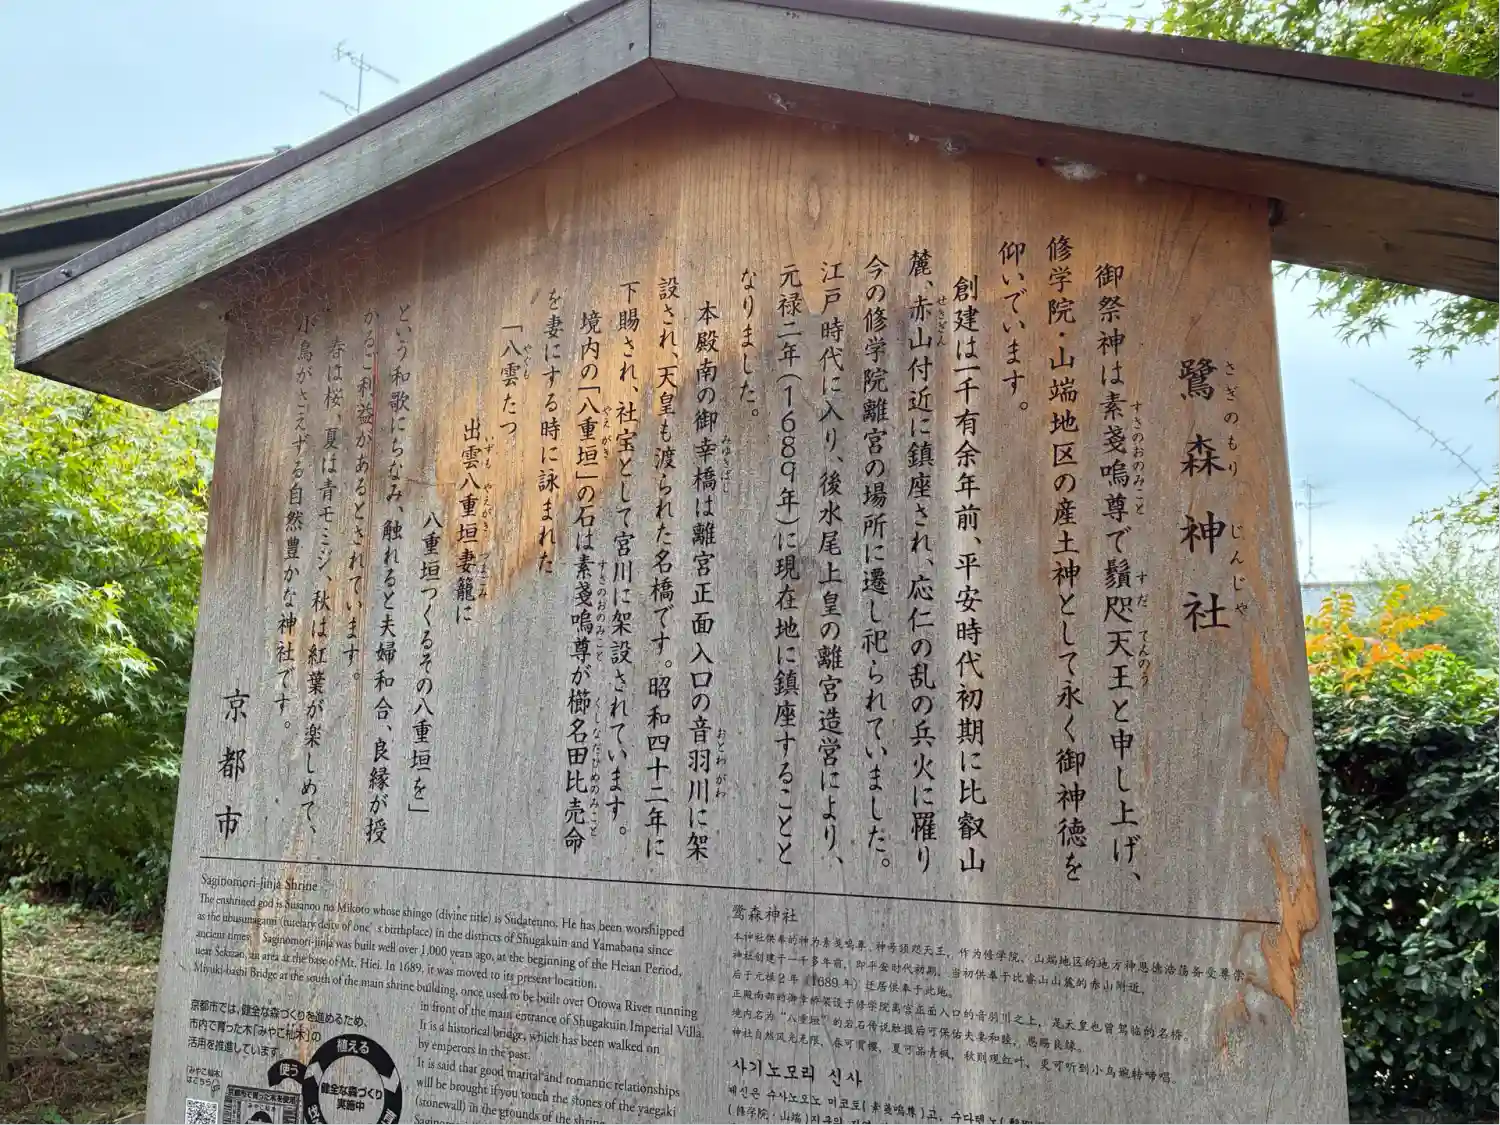 鷺森神社
さぎのもり じんじゃ
御祭神は素戔嗚尊で鬚咫天王と申し上げ、
すさのおのみこと すだ てんのう
修学院・山端地区の産土神として永く御神徳を
仰いでいます。
創建は一千有余年前、平安時代初期に比叡山
麓、赤山付近に鎮座され、応仁の乱の兵火に罹り
せきざん
今の修学院離宮の場所に遷し祀られていました。
江戸時代に入り、後水尾上皇の離宮造営により、
元禄二年(1689年)に現在地に鎮座することと
なりました。
本殿南の御幸橋は離宮正面入口の音羽川に架
みゆきばし おとわがわ
設され、天皇も渡られた名橋です。昭和四十二年に
下賜され、社宝として宮川に架設されています。
境内の「八重垣」の石は素戔嗚尊が櫛名田比売命
やえがき すさのおのみこと くしなだひめのみこと
を妻にする時に詠まれた
「八雲たつ
やくも
出雲八重垣妻籠に
いずも やえがき つまごみ
八重垣つくるその八重垣を」
という和歌にちなみ、触れると夫婦和合、良縁が授
かるご利益があるとされています。
春は桜、夏は青モミジ、秋は紅葉が楽しめて、
小鳥がさえずる自然豊かな神社です。
京都市
Saginomori-Jinja Shrine
The enshrined god is Susanoo no Mikoto whose shingo (divine title) is Sudatenno. He has been worshipped
as the ubusunagami (tutelary deity of one's birthplace) in the districts of Shugakuin and Yamabana since
ancient times. Saginomori-jinja was built well over 1,000 years ago, at the beginning of the Heian Period,
near Sekizan, an area at the base of Mt. Hiei. In 1689, it was moved to its present location.
Miyuki-bashi Bridge at the south of the main shrine building, once used to be built over Otowa River running
in front of the main entrance of Shugakuin Imperial Villa.
It is a historical bridge, which has been walked on
by emperors in the past.
It is said that good marital and romantic relationships
will be brought if you touch the stones of the yaegaki
(stonewall) in the grounds of the shrine.
京都市では、健全な森づくりを進めるため、
市内で育った木「みやこ杣木」の
活用を推進しています。
「みやこ杣木」
はこちら
植える
使う
健全な森づくり
実施中
鹭森神社
本神社供奉的神为素戔呜尊，神号须咫天王，作为修学院、山端地区的地方神恩德浩荡备受尊崇
神社创建于一千多年前，即平安时代初期，当初供奉于比睿山山麓的赤山附近，
后于元禄2年（1689年）迁居供奉于此地。
正殿南部的御幸桥架设于修学院离宫正面入口的音羽川之上，是天皇也曾驾临的名桥。
境内名为“八重垣”的岩石传说触摸后可保佑夫妻和睦，恩赐良缘。
神社自然风光无限，春可赏樱，夏可品青枫，秋则观红叶，更可听到小鸟婉转啼唱。
사기노모리 신사
제신은 수사노오노 미코토(素戔嗚尊)고, 수다텐노
(修学院・山端)